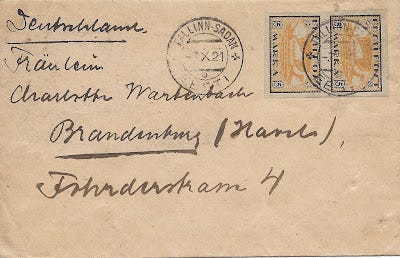 Deutschland.
Fräulein
Charlotte Wartenbach
Brandenburg (Havel)
4
TALLINN-SADAM
X 21
EESTI
5 MARKA 5
5 MARKA 5